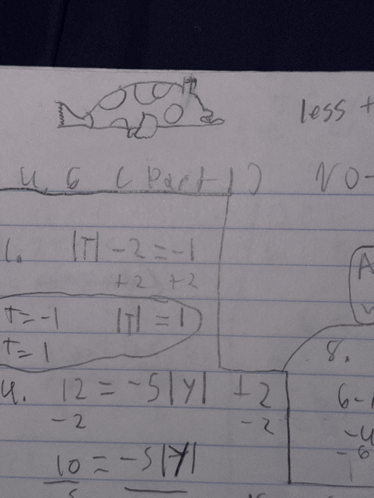 less +
4.6 (Part 1) NO-
1. |T| - 2 = -1
+2 +2
t = -1 |T| = 1
t = 1
8.
4. 12 = -5|y| + 2
-2 -2
6-
10 = -5|y|